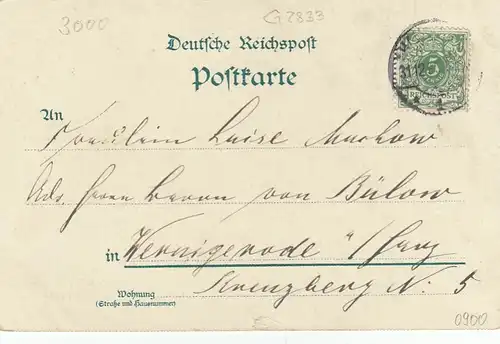 3000
G 2833
Deutsche Reichspost
Postkarte
31.12.
5
REICHSPOST
An
Fräulein Luise Markow
Adr. Herrn Baron von Bülow
in Wernigerode a/Harz
Kreuzberg N. 5
Wohnung
(Straße und Hausnummer)
0900